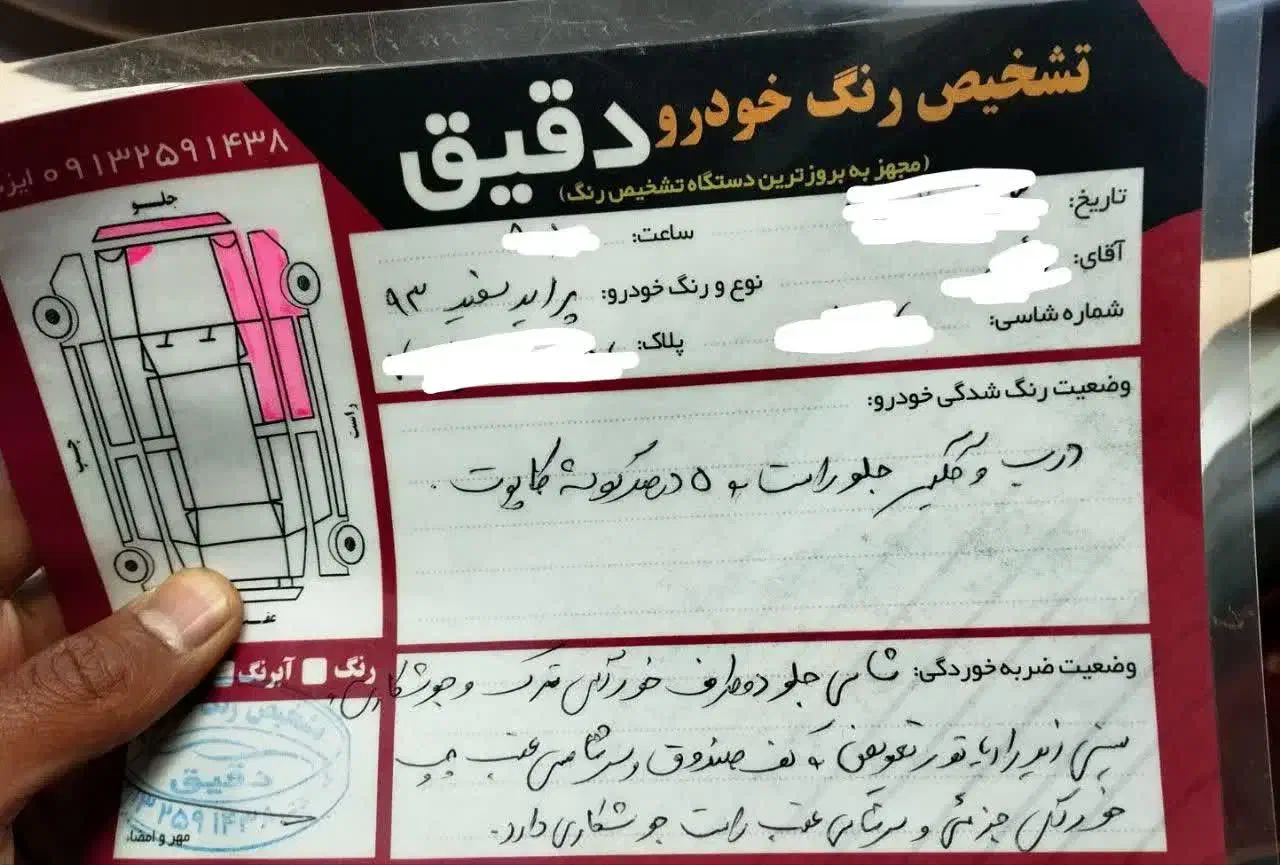 تشخیص رنگ خودرو دقیق
(مجهز به بروزترین دستگاه تشخیص رنگ)
۰۹۱۳۲۵۹۱۴۳۸
تاریخ:
ساعت:
آقای:
نوع و رنگ خودرو: پراید سفید ۹۳
شماره شاسی:
پلاک:
جلو
راست
چپ
وضعیت رنگ شدگی خودرو:
درب و گلگیر جلو راست و ۵ درصد گوشه کاپوت.
رنگ
آبرنگ
وضعیت ضربه خوردگی: شاسی جلو دو طرف خوردگی ترک و جوشکاری،
سینی زیر رادیاتور تعویض و کف صندوق و سرشاسی عقب چپ
خوردگی جزئی و سرشاسی عقب راست جوشکاری دارد.
تشخیص رنگ
دقیق
مهر و امضاء